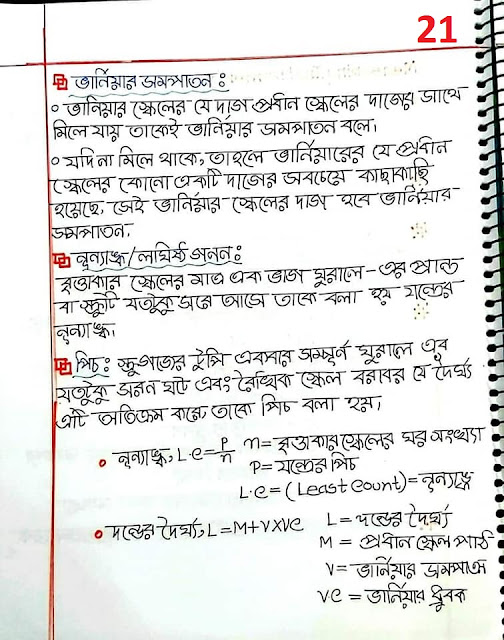 21
ভার্নিয়ার সমপাতন :
০ ভার্নিয়ার স্কেলের যে দাগ প্রধান স্কেলের দাগের সাথে
মিলে যায় তাকেই ভার্নিয়ার সমপাতন বলে।
০ যদি না মিলে থাকে, তাহলে ভার্নিয়ারের যে প্রধান
স্কেলের কোনো একটি দাগের সবচেয়ে কাছাকাছি
হয়েছে, সেই ভার্নিয়ার স্কেলের দাগ হবে ভার্নিয়ার
সমপাতন,
ন্যূনাঙ্ক/লঘিষ্ঠ গনন:
বৃত্তাকার স্কেলের মাত্র এক ভাগ ঘুরালে-এর প্রান্ত
বা স্ক্রুটি যতটুকু সরে আসে তাকে বলা হয় যন্ত্রের
ন্যূনাঙ্ক।
পিচ: স্ক্রুগজের টুপি একবার সম্পূর্ন ঘুরালে এর
যতটুকু সরন ঘটে এবং রৈখিক স্কেল বরাবর যে দৈর্ঘ্য
এটি অতিক্রম করে তাকে পিচ বলা হয়।
• ন্যূনাঙ্ক, L.c = P/n n = বৃত্তাকার স্কেলের ঘর সংখ্যা
P = যন্ত্রের পিচ
L.c = (Least count) = ন্যূনাঙ্ক
• দন্ডের দৈর্ঘ্য, L = M+V×VC L = দন্ডের দৈর্ঘ্য
M = প্রধান স্কেল পাঠ
V = ভার্নিয়ার সমপাতন
VC = ভার্নিয়ার ধ্রুবক